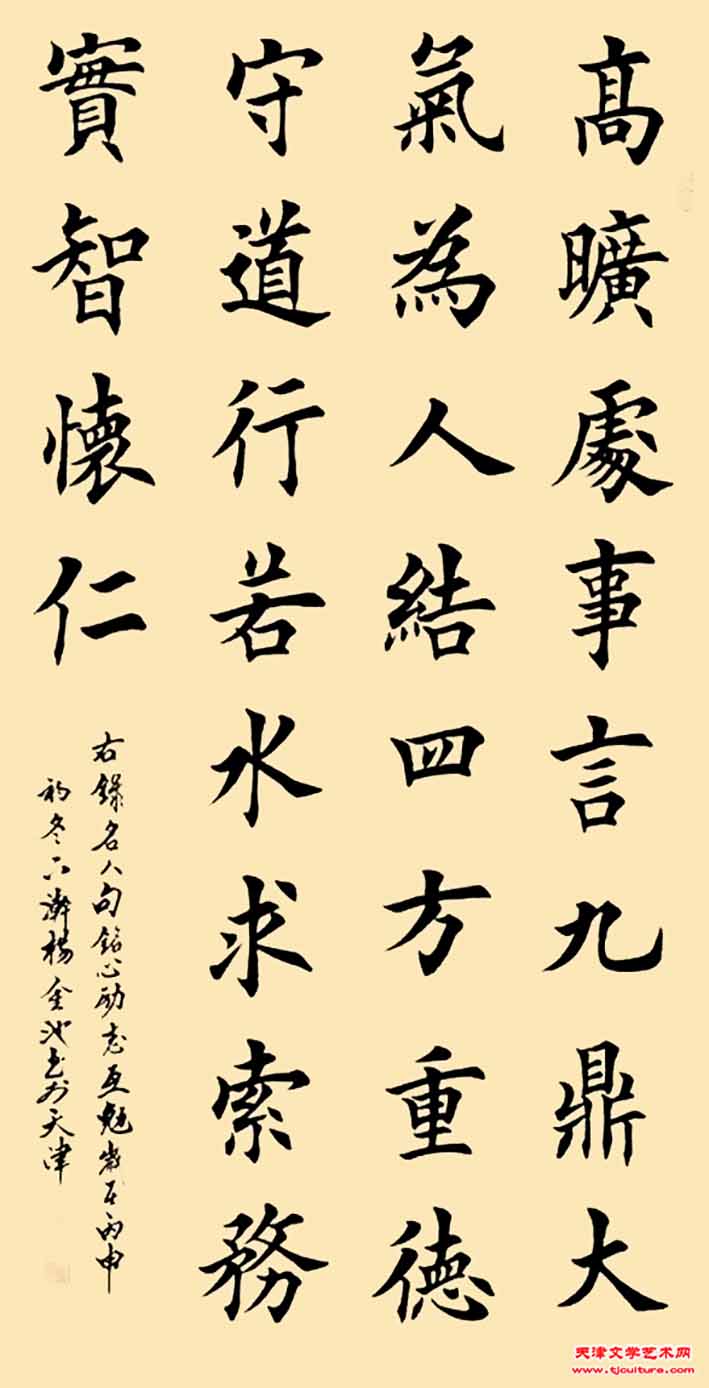 高曠處事言九鼎大
氣為人結四方重德
守道行若水求索務
實智懷仁
右錄名人句銘心勵志互勉歲在丙申
初冬六瀚楊金池書於天津
天津文学艺术网
www.tjculture.com